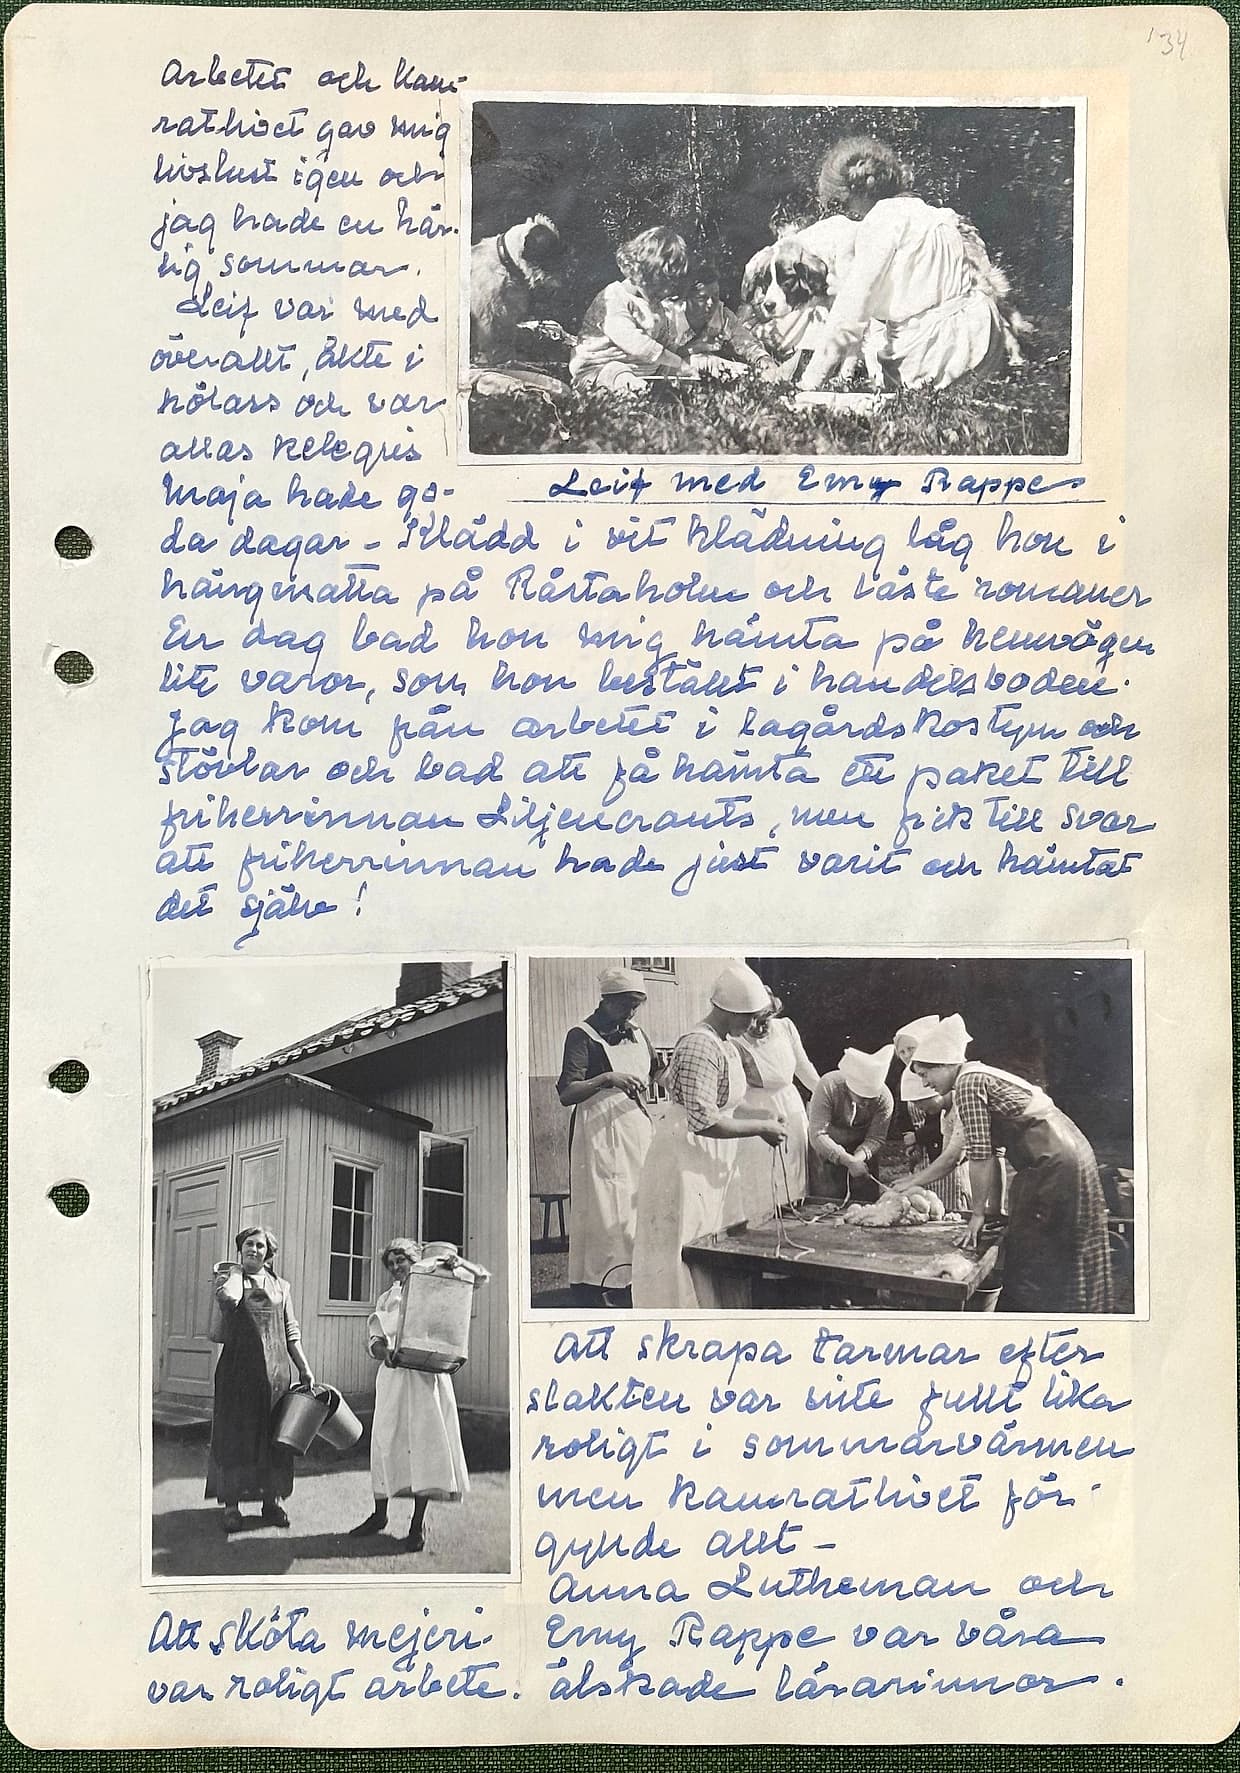 '34
Arbetet och kam-
rathivet gav mig
livslust igen och
jag hade en här-
lig sommar.
Leif var med
överallt, åkte i
hölass och var
allas kelegris
Maja hade go-
Leif med Emy Rappe
da dagar - Klädd i vit klädning låg hon i
hängmatta på Råstaholm och läste romaner
En dag bad hon mig hämta på hemvägen
lite varor, som hon beställt i handelsboden.
Jag kom från arbetet i lagårdskostym och
stövlar och bad att få hämta ett paket till
friherrinnan Liljencrants, men fick till svar
att friherrinnan hade just varit och hämtat
det själv!
Att skrapa tarmar efter
slakten var inte fullt lika
roligt i sommarvärmen
men kamratlivet för-
gyllde allt -
Anna Lutheman och
Emy Rappe var våra
älskade lärarinnor.
Att sköta mejeri
var roligt arbete.